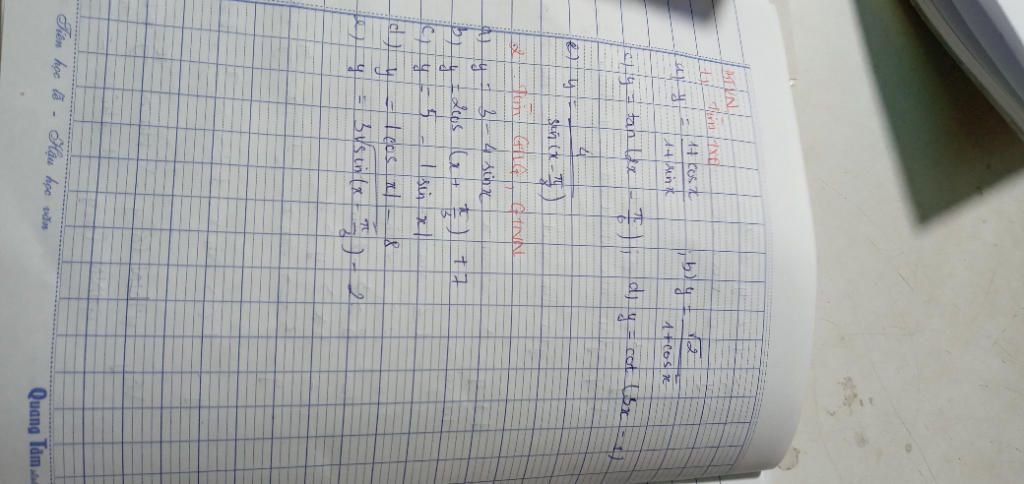 BTVN
1, Tìm TXĐ
a) y = \frac{1+cosx}{1+sinx} , b) y = \frac{\sqrt{2}}{1+cosx}
c) y = tan(2x - \frac{π}{6}); d) y = cot(3x - 1)
e) y = \frac{4}{sin(x - \frac{π}{3})}
2. Tìm GTLN, GTNN
a) y = 3 - 4sinx
b) y = 2cos(x + \frac{π}{3}) + 7
c) y = 5 - |sinx|
d) y = |cosx| - 8
e) y = 3\sqrt{sin(x - \frac{π}{3})} - 2
Tiên học lễ - Hậu học văn
Quang Tâm